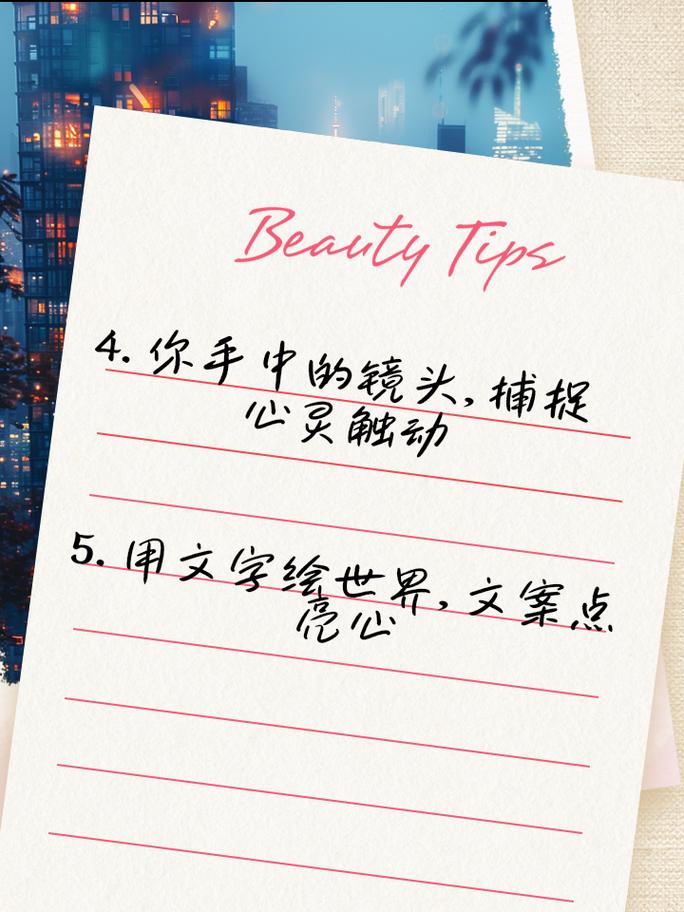 Beauty Tips
4. 你手中的镜头,捕捉
心灵触动
5. 用文字绘世界,文案点
亮心